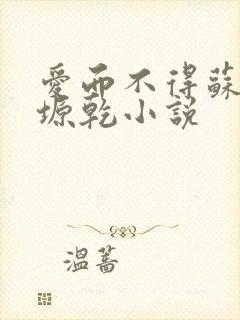 愛而不得蘇
塬乾小説
溫蒿